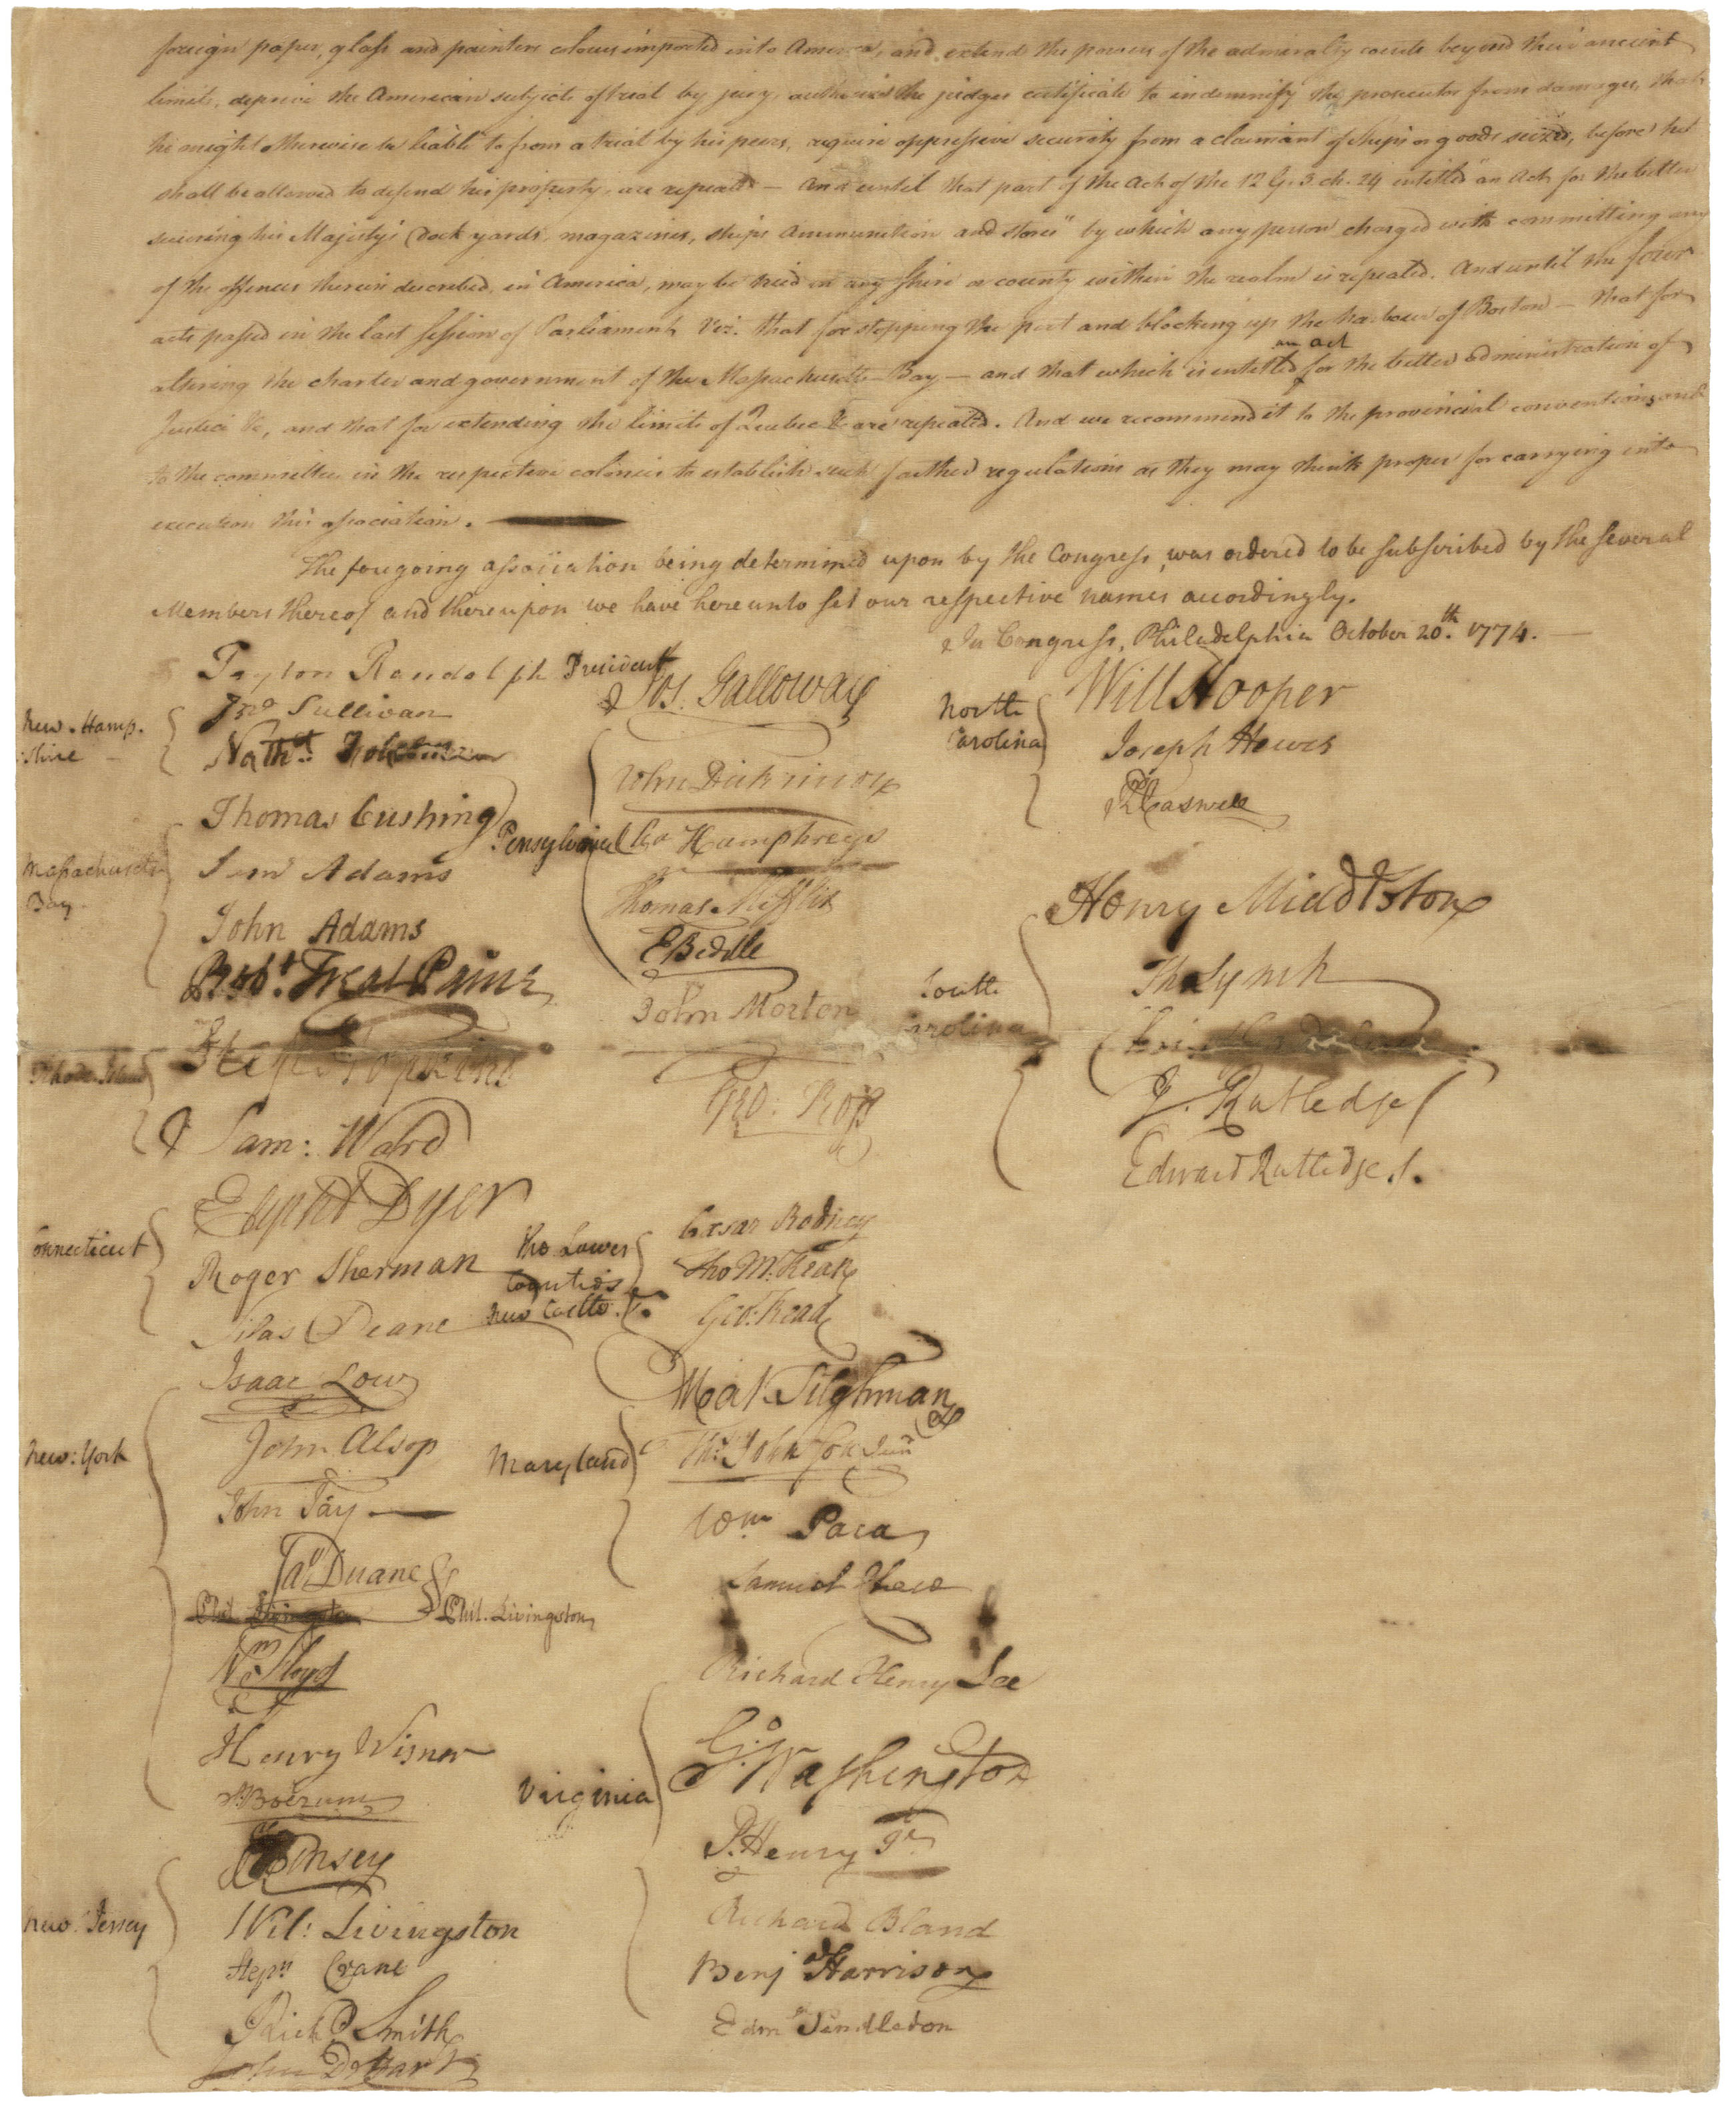 foreign paper, glass and painters colours imported into America, and extend the powers of the admiralty courts beyond their ancient
limits, deprive the American subjects of trial by jury, authorize the judges certificate to indemnify the prosecutor from damages, that
he might otherwise be liable to from a trial by his peers, require oppressive security from a claimant of ships or goods seized, before he
shall be allowed to defend his property, are repealed — And until that part of the Act of the 12 G. 3. ch. 24 entitled "an Act for the better
securing his Majesty's Dock yards, magazines, ships Ammunition and stores" by which any person charged with committing any
of the offences therein described, in America, may be tried in any shire or county within the realm is repealed. And until the four
acts passed in the last session of Parliament, Viz. that for stopping the port and blocking up the harbour of Boston — that for
altering the charter and government of the Massachusetts-Bay — and that which is entitled an act for the better administration of
Justice &c, and that for extending the limits of Quebec &c are repealed. And we recommend it to the provincial conventions and
to the committees in the respective colonies to establish such farther regulations as they may think proper for carrying into
execution this association.
The foregoing association being determined upon by the Congress, was ordered to be subscribed by the several
Members thereof and thereupon we have hereunto set our respective names accordingly.
In Congress, Philadelphia October 20th. 1774.
Peyton Randolph President
New-Hamp-
shire
Jno Sullivan
Nathl. Folsom
Massachusetts
Bay
Thomas Cushing
Saml Adams
John Adams
Robt. Treat Paine
Rhode-Island
Step Hopkins
Sam: Ward
Connecticut
Eliphlt Dyer
Roger Sherman
Silas Deane
New-York
Isaac Low
John Alsop
John Jay
Jas Duane
Phil. Livingston
Phil. Livingston
Wm Floyd
Henry Wisner
S: Boerum
New-Jersey
J Kinsey
Wil: Livingston
Stepn Crane
Richd Smith
John De Hart
Pensylvania
Jos. Galloway
John Dickinson
Cha Humphreys
Thomas Mifflin
E Biddle
John Morton
Geo: Ross
The Lower
Counties
New Castle
Cæsar Rodney
Tho M:Kean
Geo: Read
Maryland
Mat Tilghman
Ths. Johnson Junr
Wm Paca
Samuel Chase
Virginia
Richard Henry Lee
Go. Washington
P. Henry Jr
Richard Bland
Benja Harrison
Edmd Pendleton
North
Carolina
Will Hooper
Joseph Hewes
Rd Caswell
South
Carolina
Henry Middleton
Tho Lynch
J. Rutledge
Edward Rutledge.